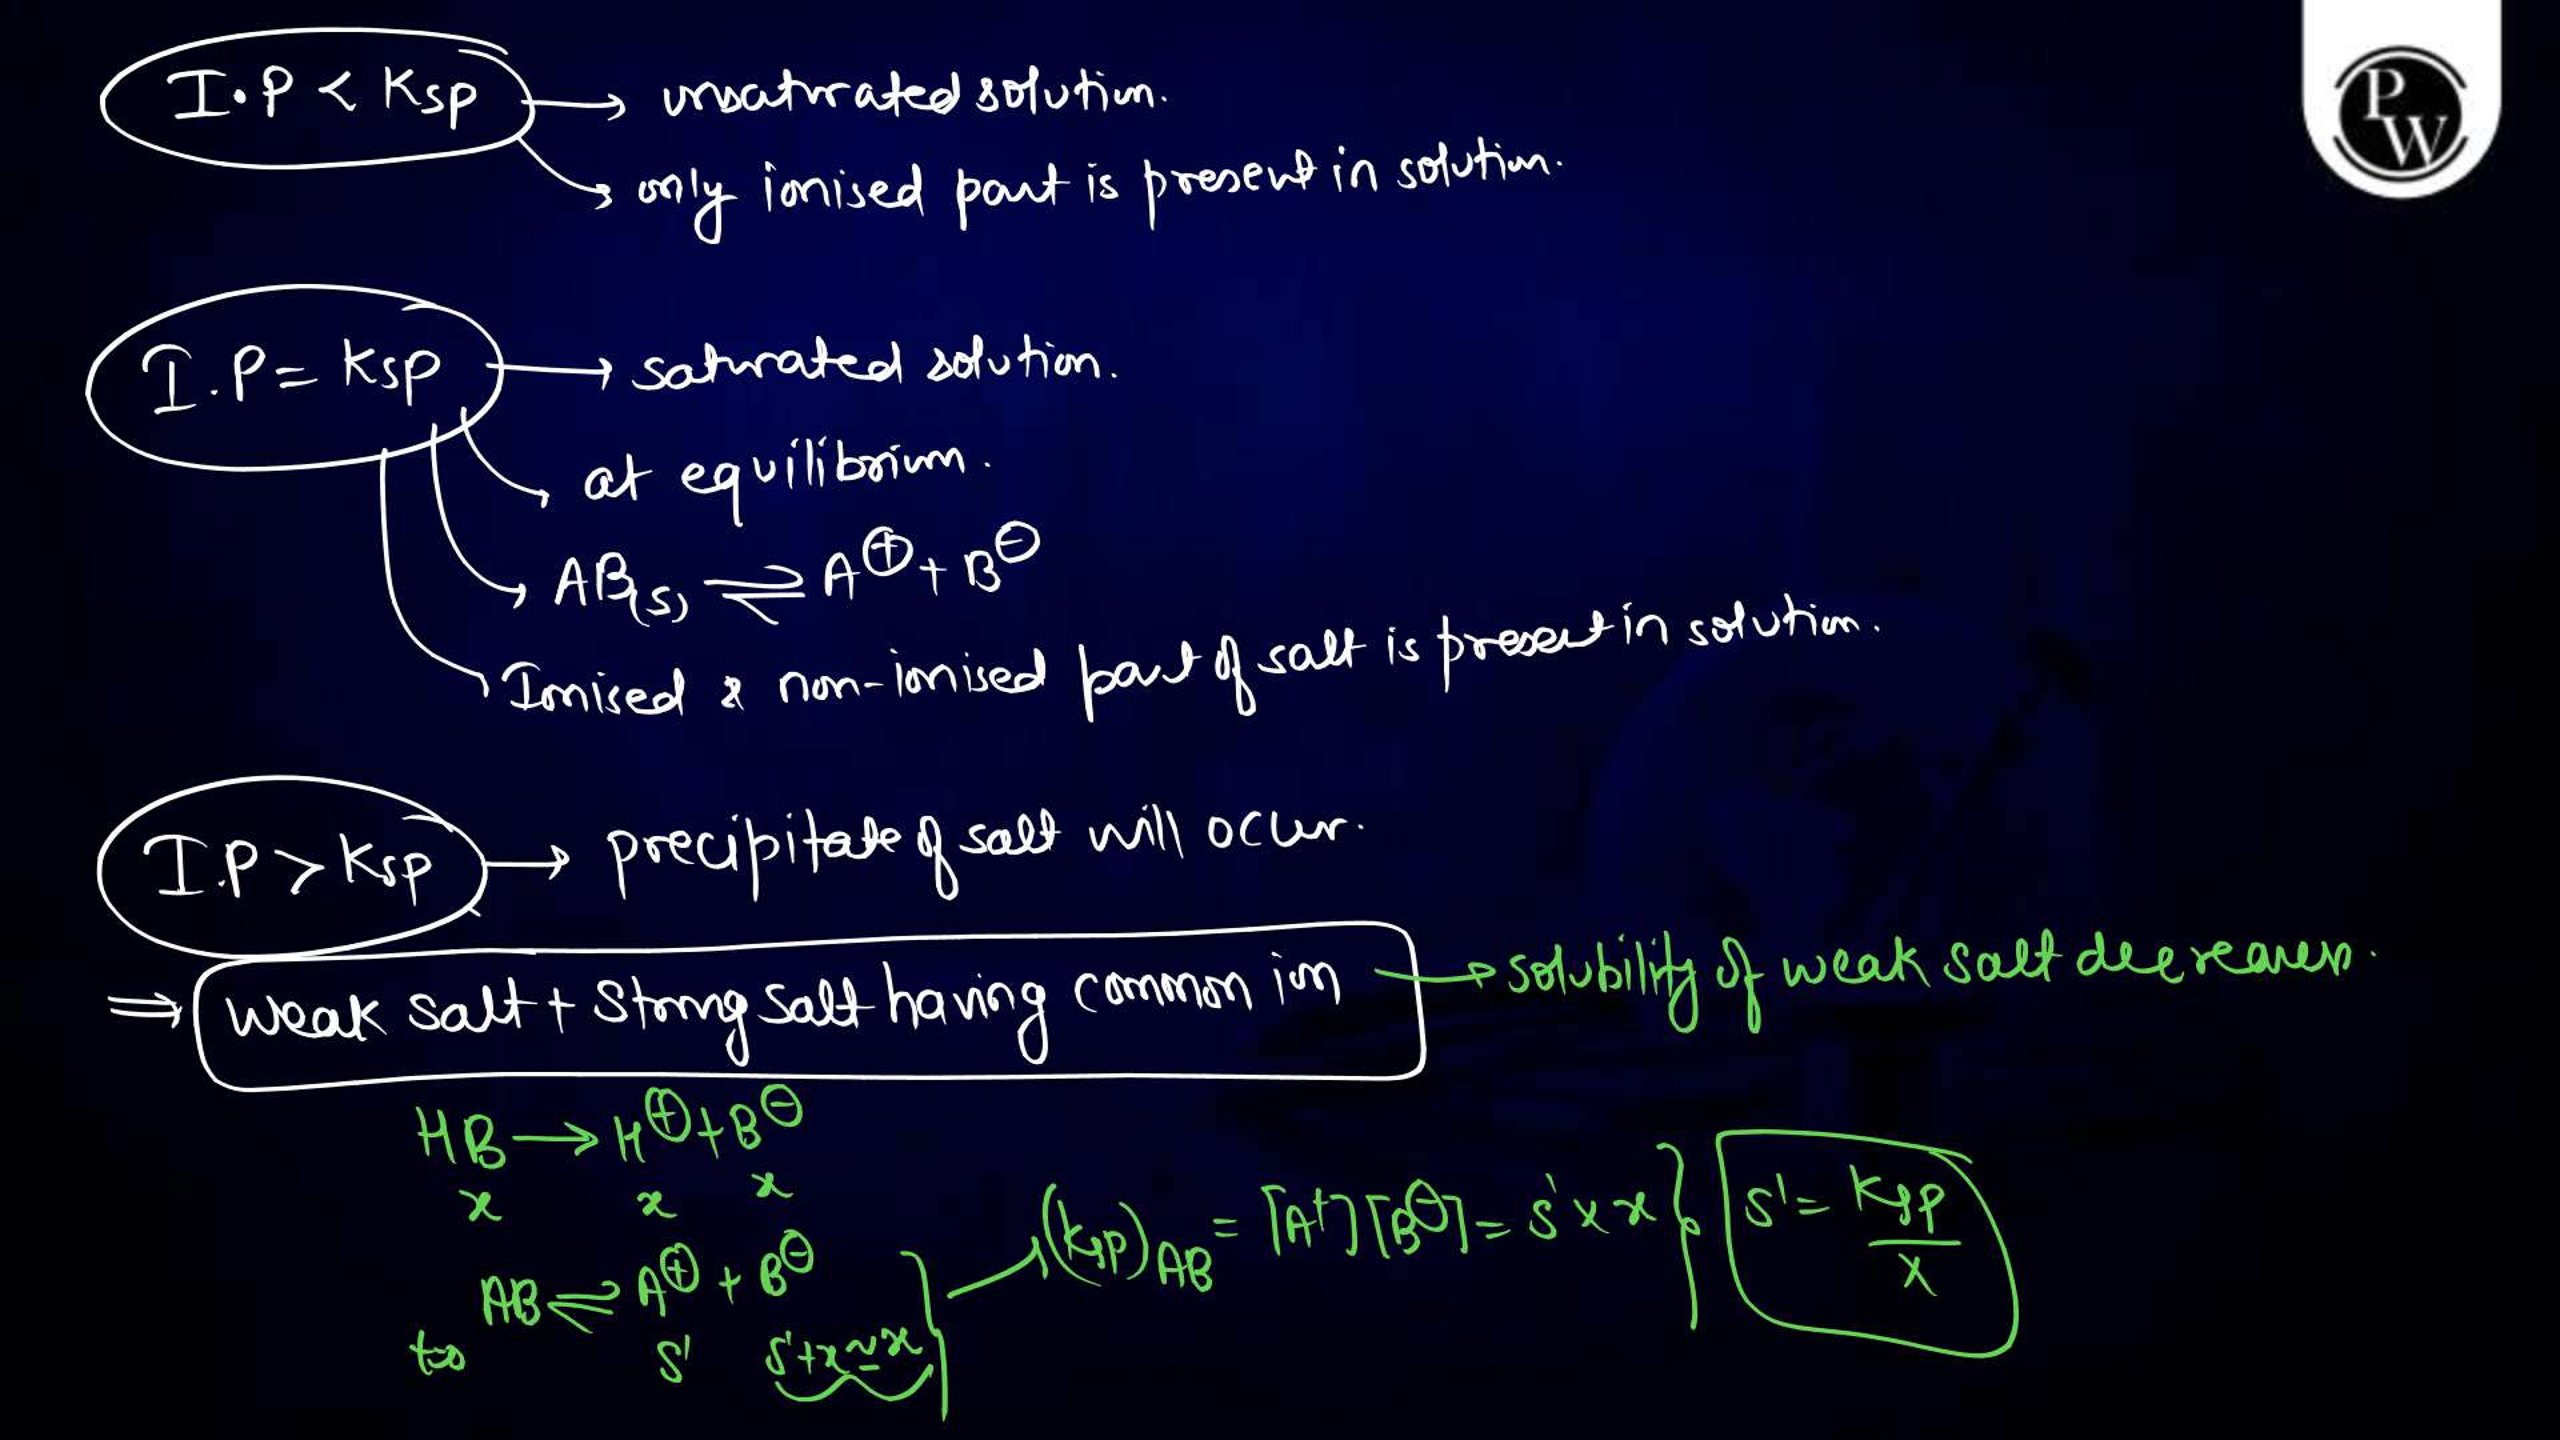 I.P < Ksp → unsaturated solution.
→ only ionised part is present in solution.
PW
I.P = Ksp → saturated solution.
→ at equilibrium.
→ AB(s) ⇌ A⊕ + B⊖
→ Ionised & non-ionised part of salt is present in solution.
I.P > Ksp → precipitate of salt will occur.
⇒ weak salt + Strong salt having common ion → solubility of weak salt decreases.
HB → H⊕ + B⊖
x x x
(Ksp)AB = [A+][B⊖] = s' × x } s' = Ksp/x
AB ⇌ A⊕ + B⊖
s' s'+x ≃ x